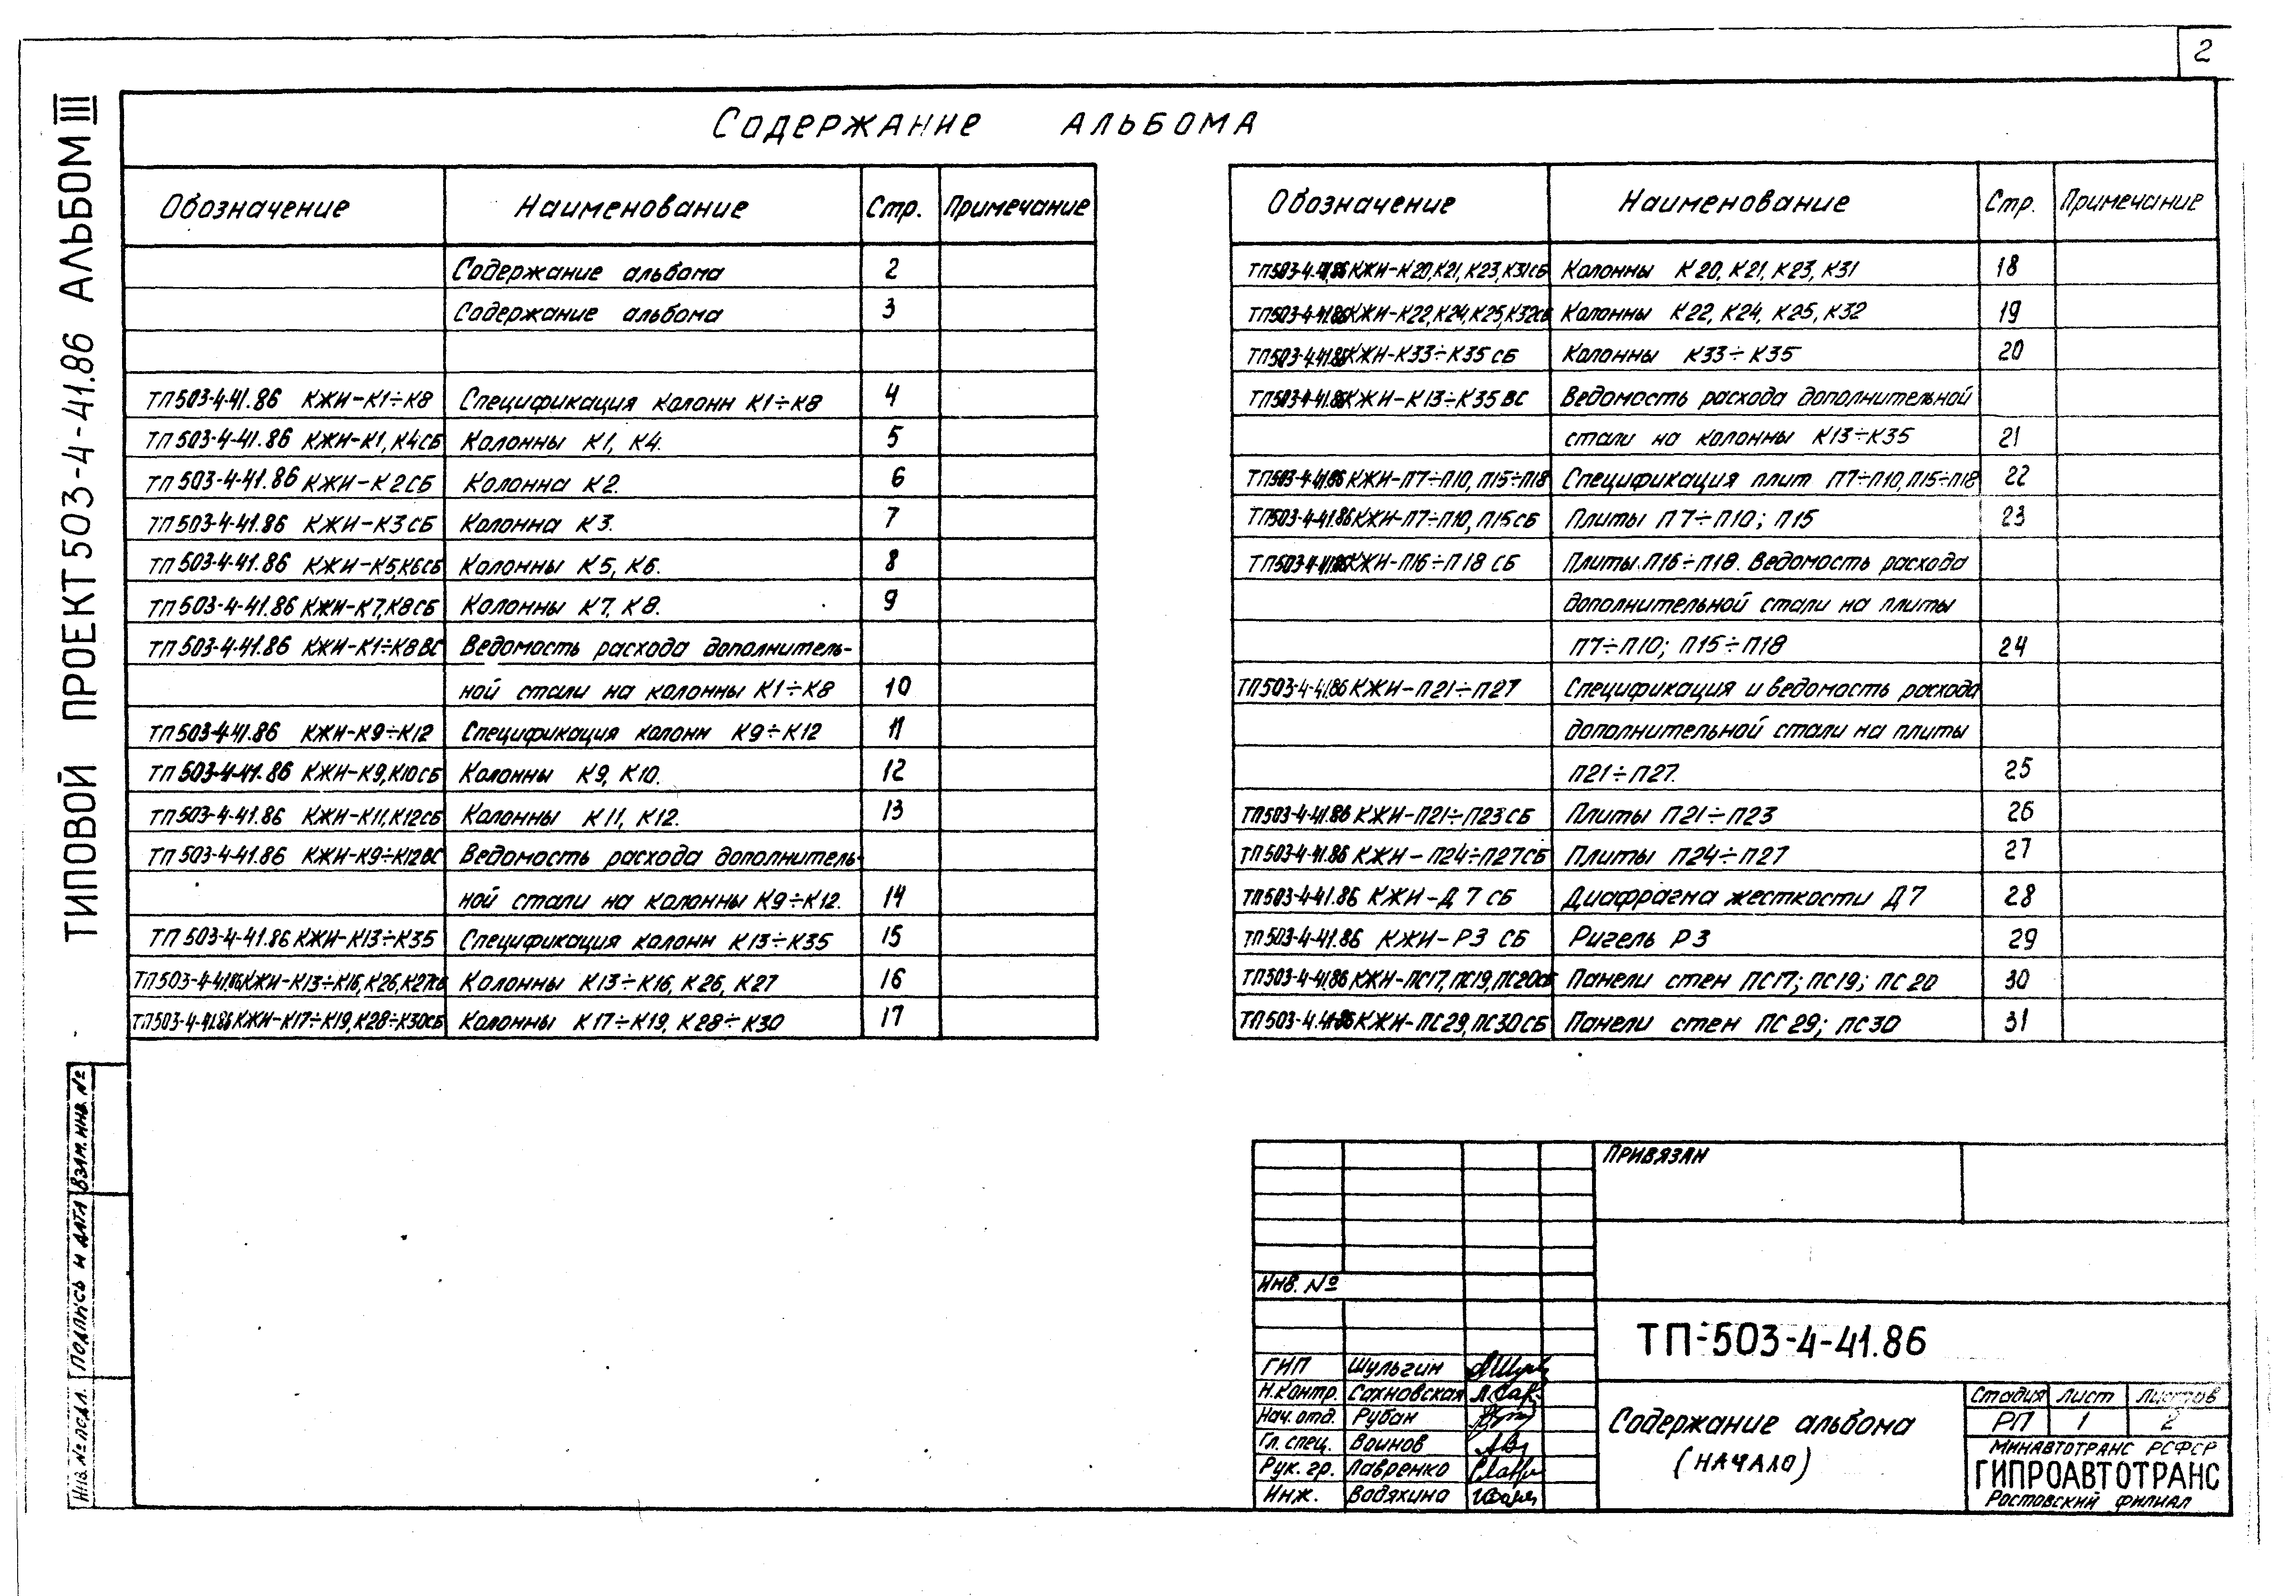 2
ТИПОВОЙ ПРОЕКТ 503-4-41.86 АЛЬБОМ III
СОДЕРЖАНИЕ АЛЬБОМА
Обозначение Наименование Стр. Примечание
Содержание альбома 2
Содержание альбома 3
ТП 503-4-41.86 КЖИ-К1÷К8 Спецификация колонн К1÷К8 4
ТП 503-4-41.86 КЖИ-К1, К4СБ Колонны К1, К4. 5
ТП 503-4-41.86 КЖИ-К2СБ Колонна К2. 6
ТП 503-4-41.86 КЖИ-К3СБ Колонна К3. 7
ТП 503-4-41.86 КЖИ-К5,К6СБ Колонны К5, К6. 8
ТП 503-4-41.86 КЖИ-К7,К8СБ Колонны К7, К8. 9
ТП 503-4-41.86 КЖИ-К1÷К8ВС Ведомость расхода дополнитель-
ной стали на колонны К1÷К8 10
ТП 503-4-41.86 КЖИ-К9÷К12 Спецификация колонн К9÷К12 11
ТП 503-4-41.86 КЖИ-К9,К10СБ Колонны К9, К10. 12
ТП 503-4-41.86 КЖИ-К11,К12СБ Колонны К11, К12. 13
ТП 503-4-41.86 КЖИ-К9÷К12ВС Ведомость расхода дополнитель-
ной стали на колонны К9÷К12. 14
ТП 503-4-41.86 КЖИ-К13÷К35 Спецификация колонн К13÷К35 15
ТП503-4-41.86 КЖИ-К13÷К16,К26,К27СБ Колонны К13÷К16, К26, К27 16
ТП503-4-41.86 КЖИ-К17÷К19,К28÷К30СБ Колонны К17÷К19, К28÷К30 17
Обозначение Наименование Стр. Примечание
ТП503-4-41.86 КЖИ-К20,К21,К23,К31СБ Колонны К20, К21, К23, К31 18
ТП503-4-41.86 КЖИ-К22,К24,К25,К32СБ Колонны К22, К24, К25, К32 19
ТП503-4-41.86 КЖИ-К33÷К35 СБ Колонны К33÷К35 20
ТП503-4-41.86 КЖИ-К13÷К35 ВС Ведомость расхода дополнительной
стали на колонны К13÷К35 21
ТП503-4-41.86 КЖИ-П7÷П10, П15÷П18 Спецификация плит П7÷П10, П15÷П18 22
ТП503-4-41.86 КЖИ-П7÷П10, П15СБ Плиты П7÷П10; П15 23
ТП503-4-41.86 КЖИ-П16÷П18 СБ Плиты П16÷П18. Ведомость расхода
дополнительной стали на плиты
П7÷П10; П15÷П18 24
ТП503-4-41.86 КЖИ-П21÷П27 Спецификация и ведомость расхода
дополнительной стали на плиты
П21÷П27. 25
ТП503-4-41.86 КЖИ-П21÷П23СБ Плиты П21÷П23 26
ТП503-4-41.86 КЖИ-П24÷П27СБ Плиты П24÷П27 27
ТП503-4-41.86 КЖИ-Д7 СБ Диафрагма жесткости Д7 28
ТП503-4-41.86 КЖИ-Р3 СБ Ригель Р3 29
ТП503-4-41.86 КЖИ-ПС17, ПС19, ПС20СБ Панели стен ПС17; ПС19; ПС20 30
ТП503-4-41.86 КЖИ-ПС29, ПС30СБ Панели стен ПС29; ПС30 31
Взам. инв. №
Подпись и дата
Инв. № подл.
ПРИВЯЗАН
Инв. №
ТП-503-4-41.86
ГИП Шульгин
Н.контр. Сахновская
Нач. отд. Рубан
Гл. спец. Воинов
Рук. гр. Лавренко
Инж. Водяхина
Содержание альбома
(НАЧАЛО)
Стадия Лист Листов
РП 1 2
МИНАВТОТРАНС РСФСР
ГИПРОАВТОТРАНС
Ростовский филиал